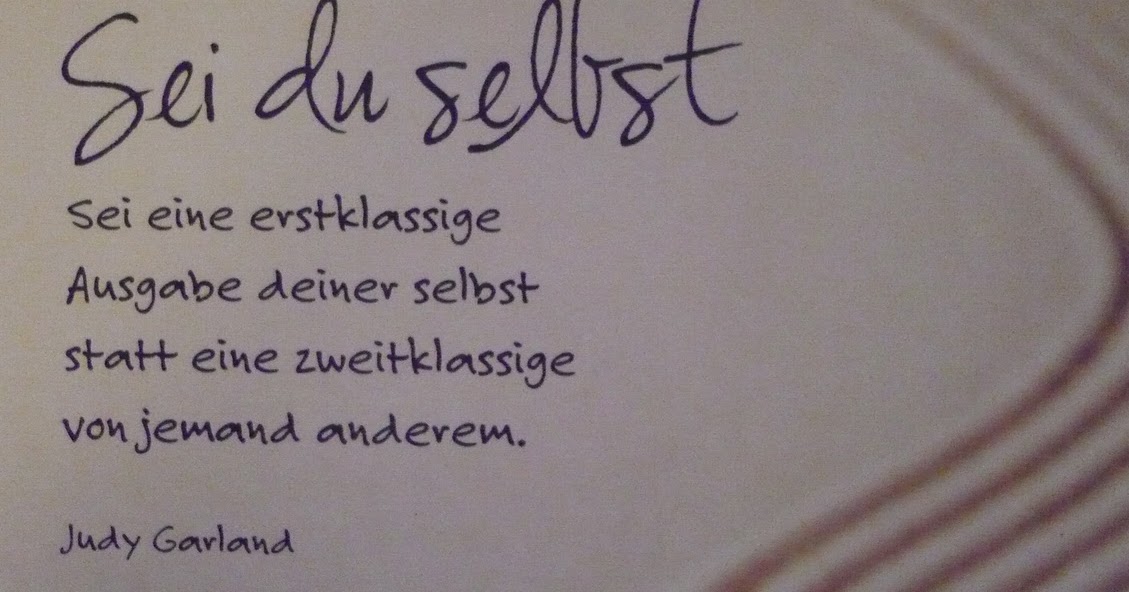 Sei du selbst
Sei eine erstklassige
Ausgabe deiner selbst
statt eine zweitklassige
von jemand anderem.
Judy Garland